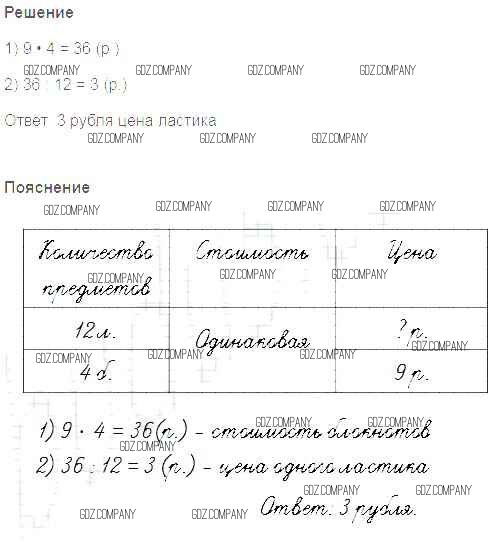 Решение
1) 9 • 4 = 36 (р.)
GDZ.COMPANY GDZ.COMPANY GDZ.COMPANY GDZ.COMPANY
2) 36 : 12 = 3 (р.)
Ответ 3 рубля цена ластика
GDZ.COMPANY GDZ.COMPANY GDZ.COMPANY
Пояснение
GDZ.COMPANY GDZ.COMPANY GDZ.COMPANY GDZ.COMPANY
Количество Стоимость Цена
GDZ.COMPANY GDZ.COMPANY GDZ.COMPANY
предметов
12 л. Одинаковая ? р.
GDZ.COMPANY GDZ.COMPANY GDZ.COMPANY GDZ.COMPANY
4 б. 9 р.
1) 9 · 4 = 36 (р.) – стоимость блокнотов
GDZ.COMPANY GDZ.COMPANY GDZ.COMPANY
2) 36 : 12 = 3 (р.) – цена одного ластика
GDZ.COMPANY GDZ.COMPANY
Ответ: 3 рубля.
GDZ.COMPANY GDZ.COMPANY GDZ.COMPANY